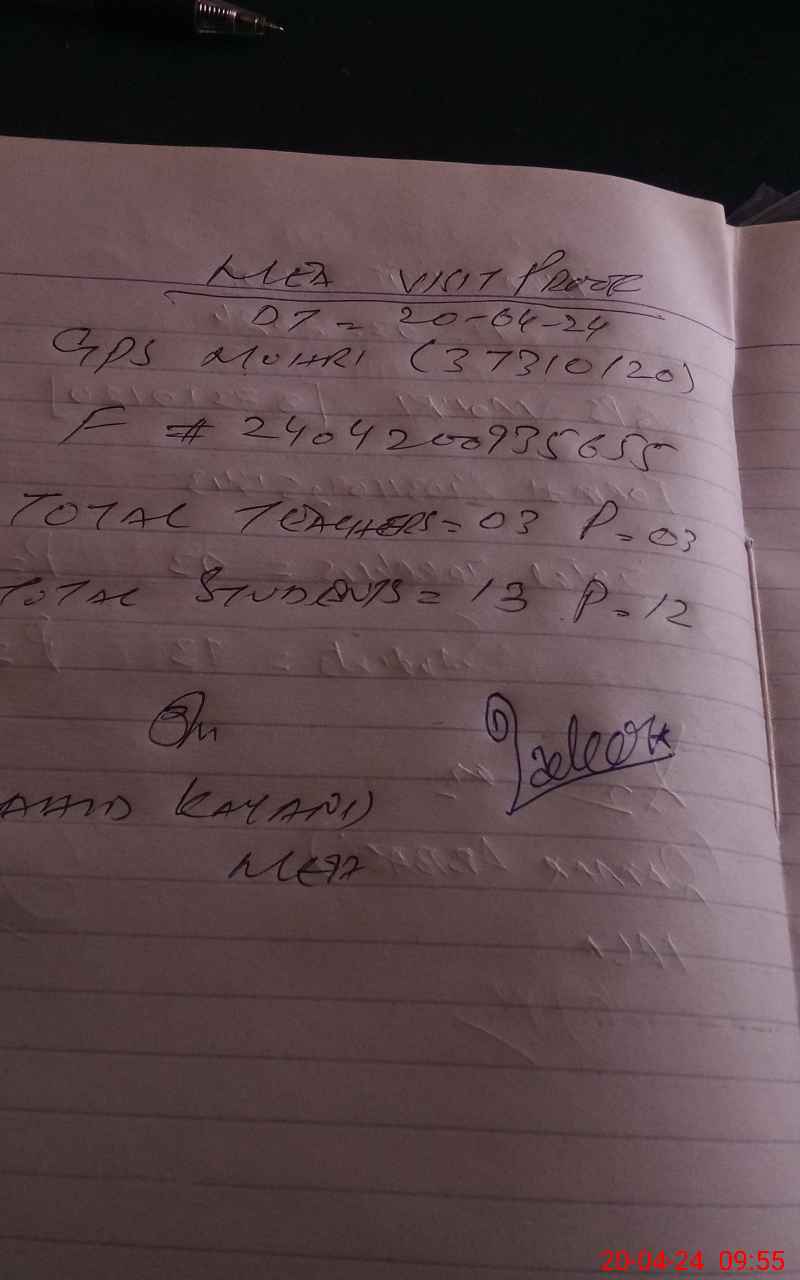 MEA VISIT PROOF
DT = 20-04-24
GPS MOHRI (37310120)
F # 2404200935655
TOTAL TEACHERS = 03 P = 03
TOTAL STUDENTS = 13 P = 12
KAYANI
MEA
20-04-24 09:55